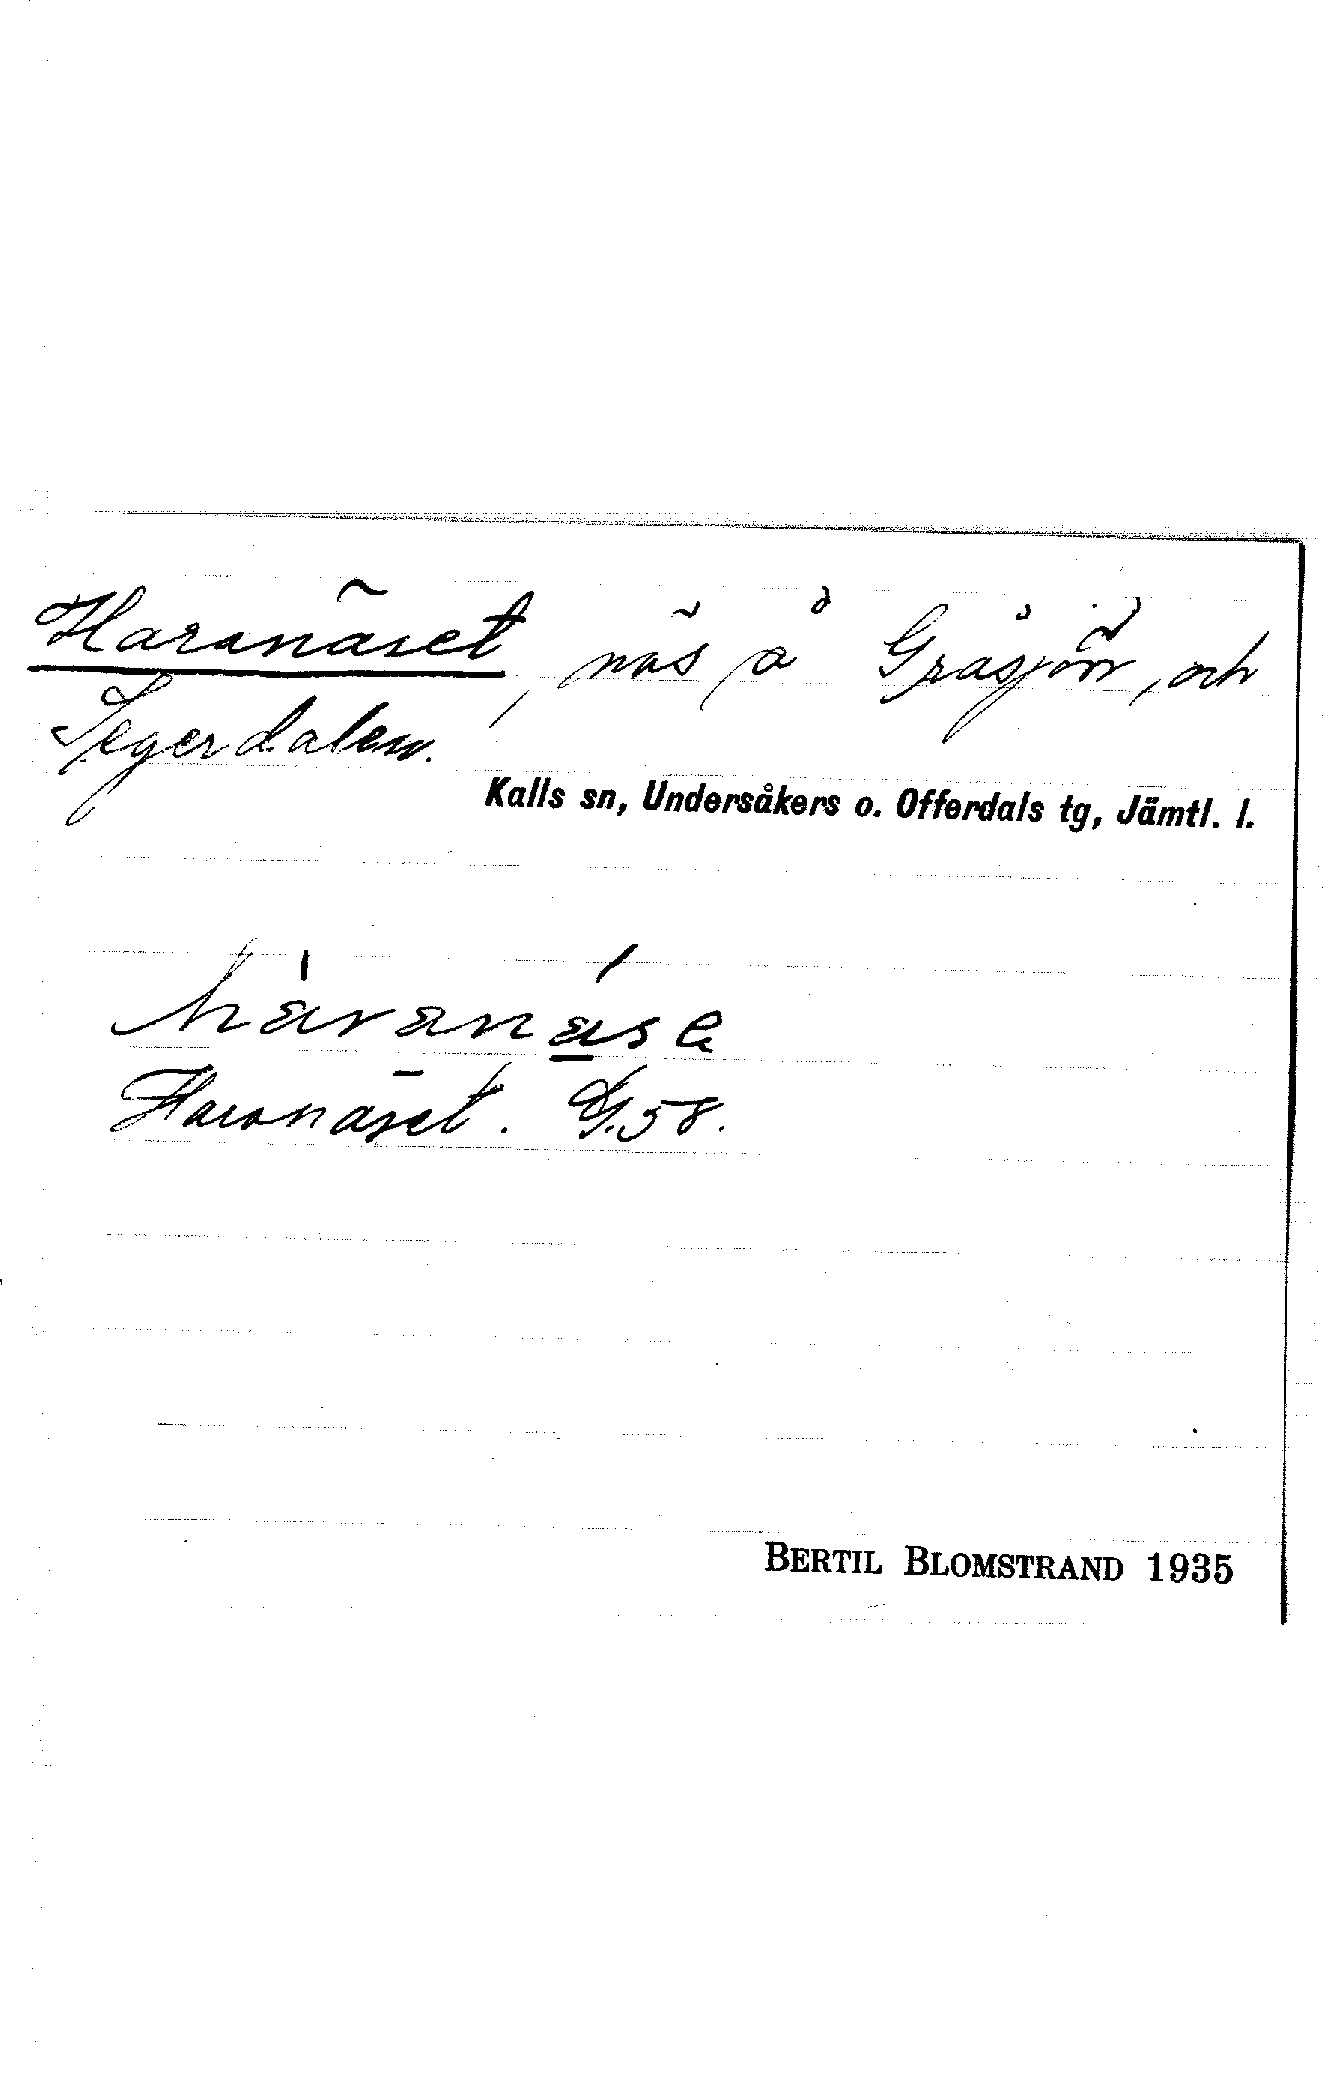 Haranäset, näs å Gråsjön, och
Segerdalen.
Kalls sn, Undersåkers o. Offerdals tg, Jämtl. l.
hàranáse
Haranäset. G.58.
BERTIL BLOMSTRAND 1935